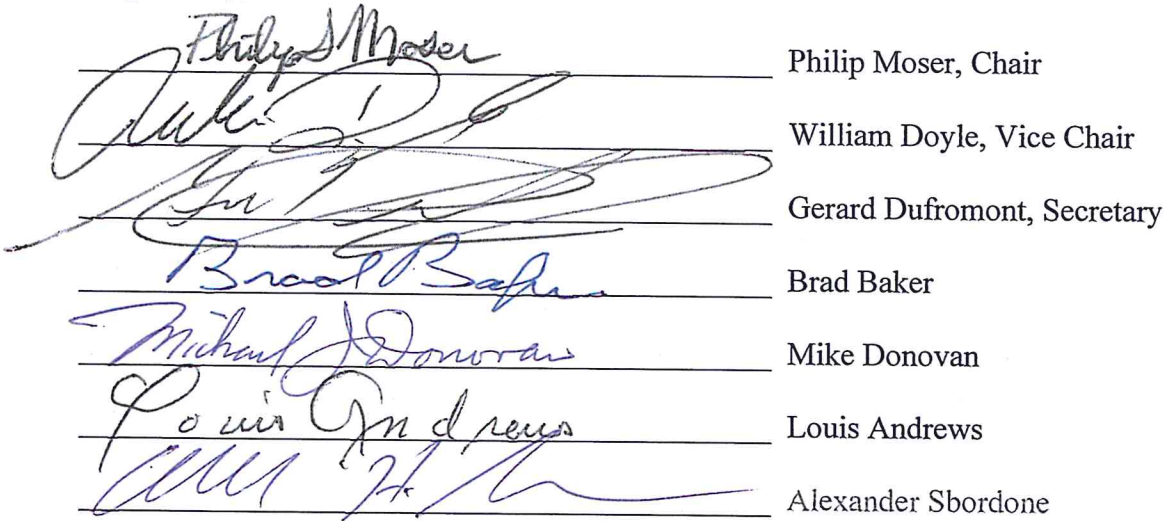 Philip S Moser Philip Moser, Chair
William Doyle, Vice Chair
Gerard Dufromont, Secretary
Brad Baker Brad Baker
Michael J Donovan Mike Donovan
Louis Andrews Louis Andrews
Alexander Sbordone